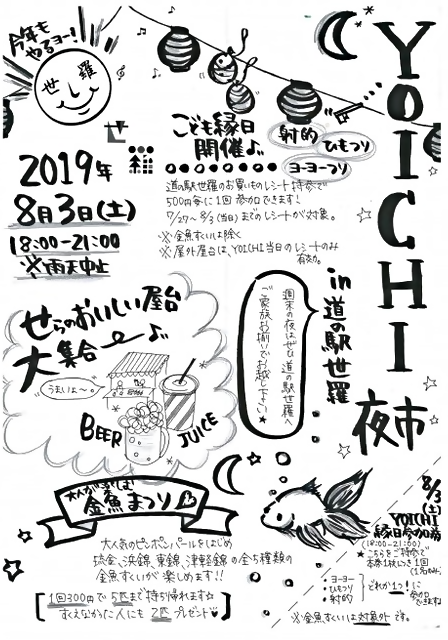 今年も
やるヨー!
世羅
YOICHI
夜市
in 道の駅世羅
世羅
2019年
8月3日(土)
18:00-21:00
※雨天中止
こども縁日
開催♪
射的
ひもつり
ヨーヨーつり
道の駅世羅のお買いものレシート持参で
500円毎に1回参加できます!
7/27～8/3(当日)までのレシートが対象。
※金魚すくいは除く
※屋外屋台は、YOICHI当日のレシートのみ
有効。
週末の夜はぜひ道の駅世羅へ
ご家族お揃いでお越し下さい★
せらのおいしい屋台
大集合
うまいよ〜。
BEER
JUICE
大人が楽しむ
金魚まつり
大人気のピンポンパールをはじめ
琉金、浜錦、東錦、津軽錦の全5種類の
金魚すくいが楽しめます!!
1回300円で5匹まで持ち帰れます☆
すくえなかった人にも2匹プレゼント♥
8/3
(土)
YOICHI
縁日参加券
(18:00-21:00)
★こちらをご持参で
本券1枚につき1回
・ヨーヨー
・ひもつり
・射的
どれか1つ!に
参加
できます
※金魚すくいは対象外です。